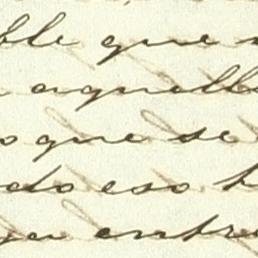 ble que
aquell
o que se
do eso
ya entr